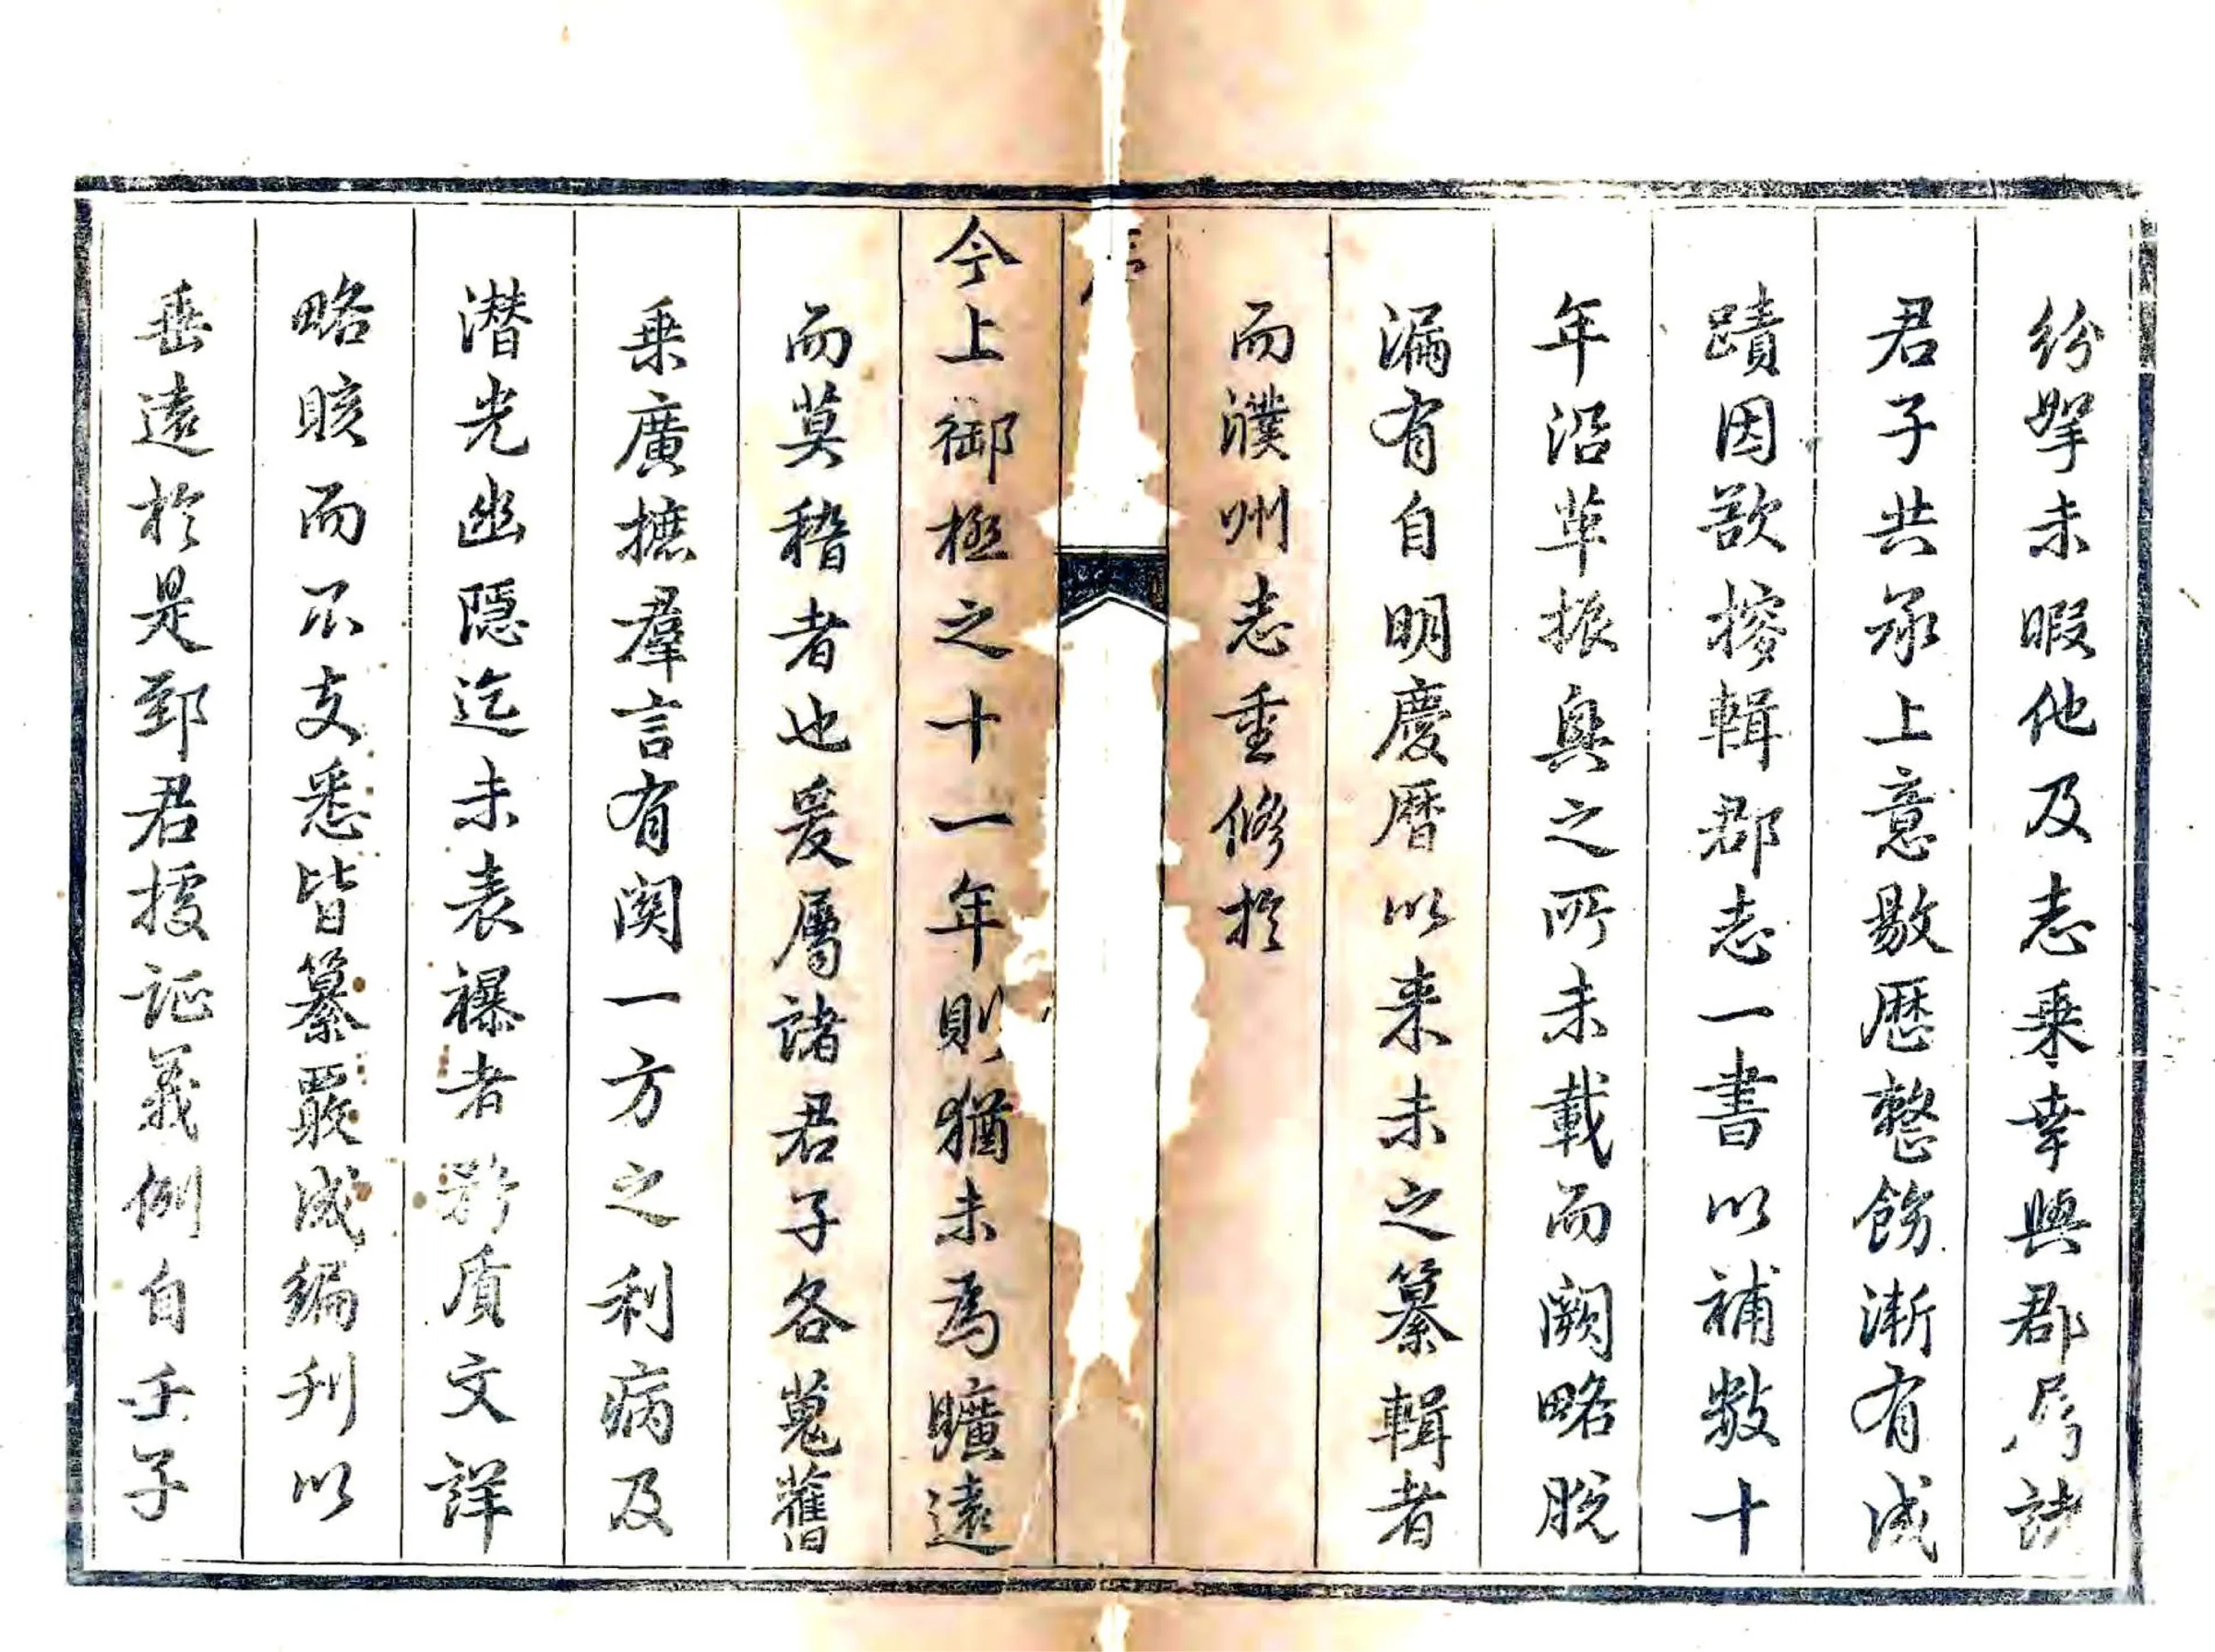 紛拏未暇他及志乗幸與郡属諸
君子共承上意敭歴整飭漸有成
蹟因欲摉輯郡志一書以補數十
年沿革振興之所未載而闕略脱
漏有自明慶曆以来未之纂輯者
而濮州志重修於
今上御極之十一年則猶未為曠遠
而莫稽者也爰屬諸君子各蒐舊
乗廣摭羣言有関一方之利病及
潜光幽隠迄未表襮者彰質文詳
略賅而不支悉皆纂覈成编刋以
垂遠於是郅君援证義例自壬子